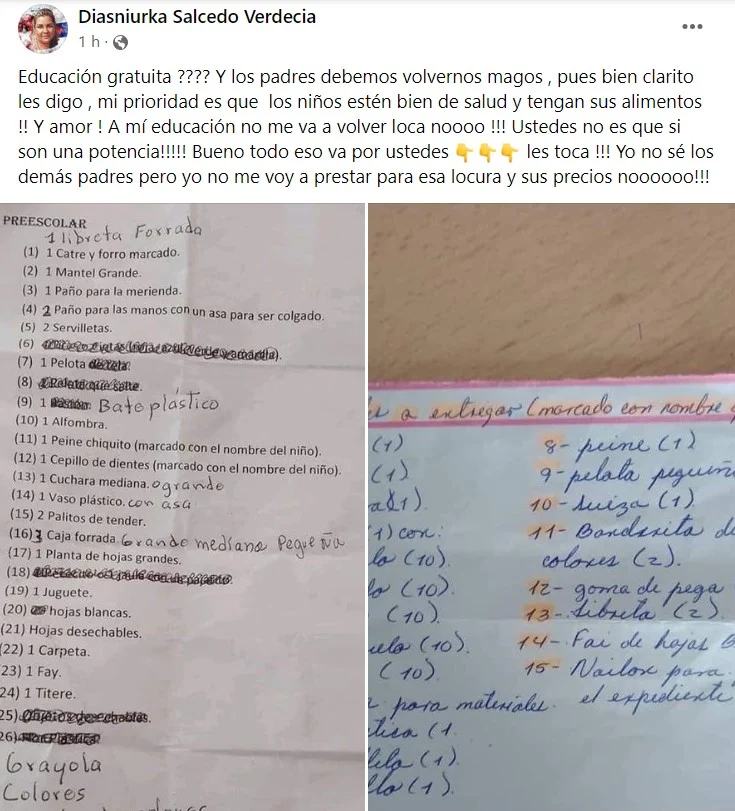 Diasniurka Salcedo Verdecia
1 h ·
Educación gratuita ???? Y los padres debemos volvernos magos , pues bien clarito
les digo , mi prioridad es que los niños estén bien de salud y tengan sus alimentos
!! Y amor ! A mí educación no me va a volver loca noooo !!! Ustedes no es que si
son una potencia!!!!! Bueno todo eso va por ustedes 👇👇👇 les toca !!! Yo no sé los
demás padres pero yo no me voy a prestar para esa locura y sus precios noooooo!!!
PREESCOLAR
1 libreta Forrada
(1) 1 Catre y forro marcado.
(2) 1 Mantel Grande.
(3) 1 Paño para la merienda.
(4) 2 Paño para las manos con un asa para ser colgado.
(5) 2 Servilletas.
(6)
(7) 1 Pelota
(8)
(9) 1 Bate plástico
(10) 1 Alfombra.
(11) 1 Peine chiquito (marcado con el nombre del niño).
(12) 1 Cepillo de dientes (marcado con el nombre del niño).
(13) 1 Cuchara mediana. o grande
(14) 1 Vaso plástico. con asa
(15) 2 Palitos de tender.
(16) 3 Caja forrada. Grande mediana Pequeña
(17) 1 Planta de hojas grandes.
(18)
(19) 1 Juguete.
(20) hojas blancas.
(21) Hojas desechables.
(22) 1 Carpeta.
23) 1 Fay.
24) 1 Titere.
25)
26)
Crayola
Colores
a entregar (marcado con nombre
(1)
(1)
(1).
1) con:
(10).
(10).
(10).
(10).
(10).
para materiales.
(1.
(1).
(1).
8- peine (1)
9- pelota pequeñ
10- suiza (1).
11- Banderita de
colores (2).
12- goma de pega
13- libreta (2).
14- Fai de hojas B
15- Nailon para
el expediente